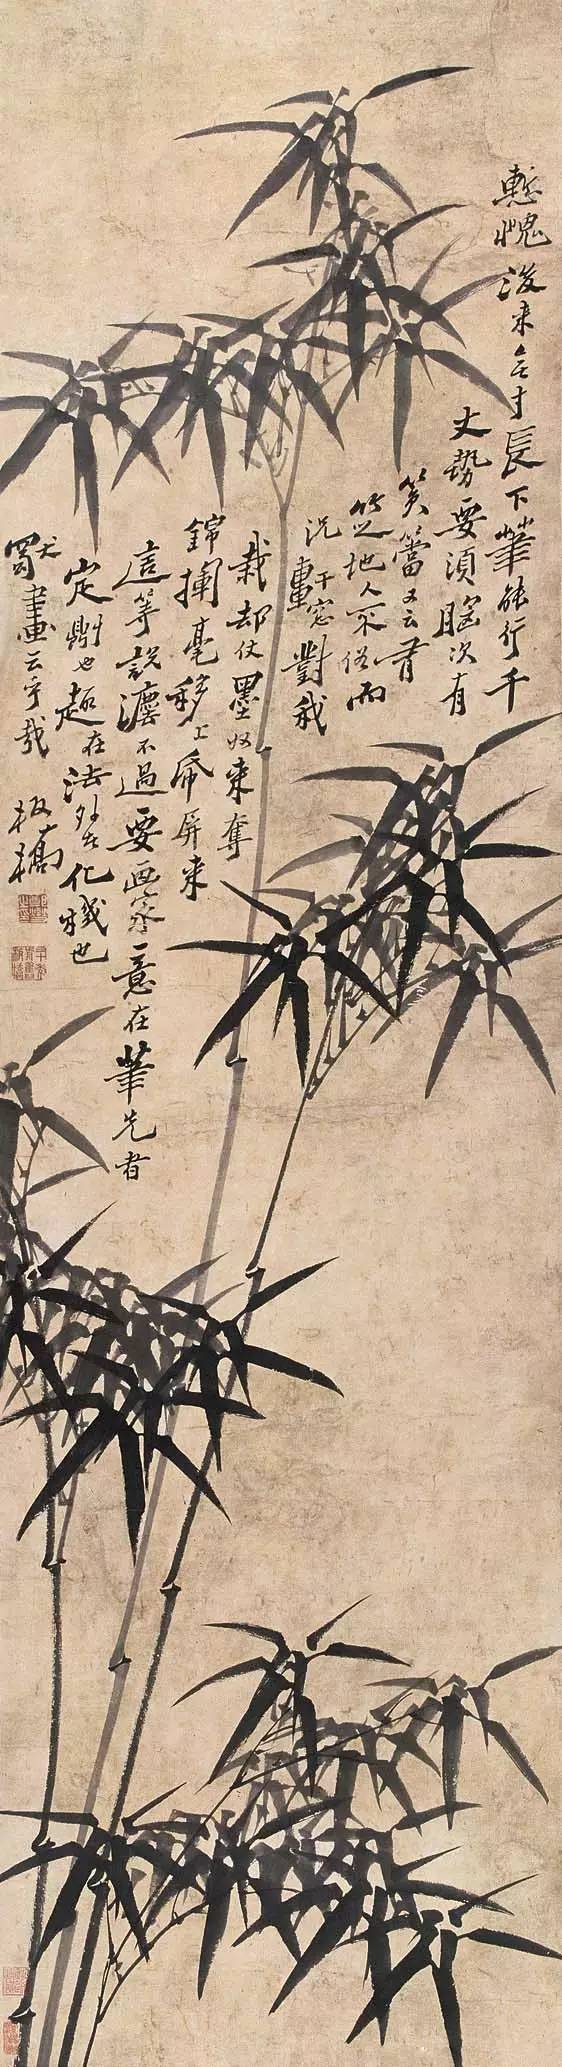 慙愧後来无寸長下筆能行千
丈勢要須胸次有
篔簹又云有
竹之地人不俗而
况軒窓對我
栽却仗墨奴来奪
錦掬毫移上帋屏来
這等說話不過要画家意在筆先者
定則也趣在法外者化機也
獨畫云乎哉
板橋